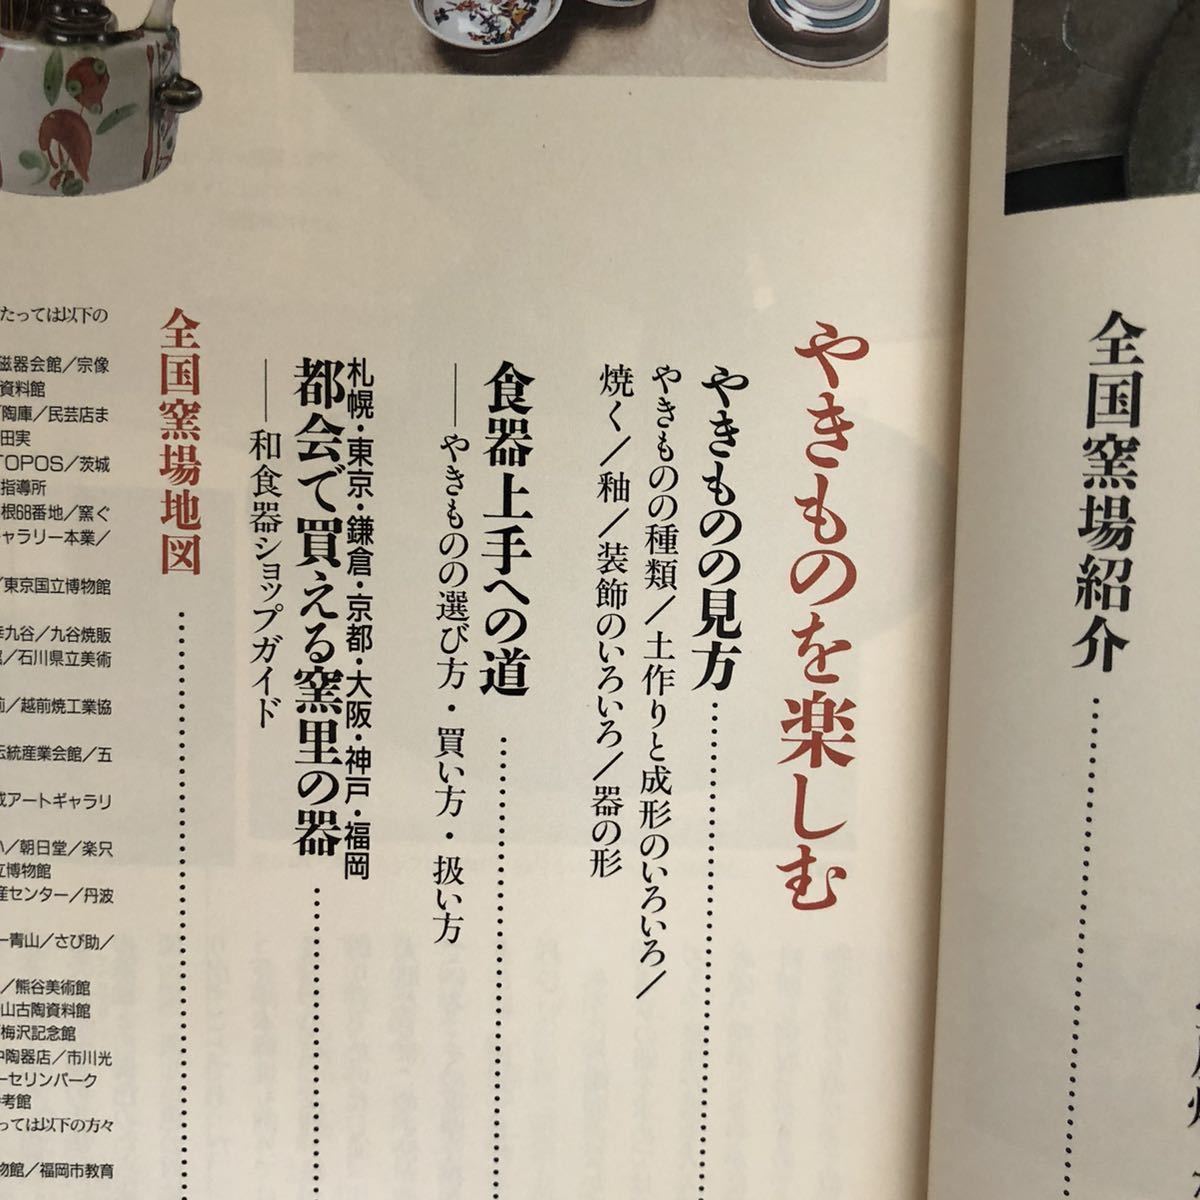 全国窯場紹介
やきものを楽しむ
やきものの見方
やきものの種類／土作りと成形のいろいろ／
焼く／釉／装飾のいろいろ／器の形
食器上手への道
──やきものの選び方・買い方・扱い方
札幌・東京・鎌倉・京都・大阪・神戸・福岡
都会で買える窯里の器
──和食器ショップガイド
全国窯場地図
たっては以下の
磁器会館／宗像
資料館
陶庫／民芸店ま
田実
TOPOS／茨城
指導所
根68番地／窯ぐ
ャラリー本業／
／東京国立博物館
九谷／九谷焼販
／石川県立美術
／越前焼工業協
伝統産業会館／五
アートギャラリ
／朝日堂／楽只
立博物館
産センター／丹波
ー青山／さび助／
／熊谷美術館
山古陶資料館
梅沢記念館
陶器店／市川光
ーセリンパーク
考館
っては以下の方々
物館／福岡市教育